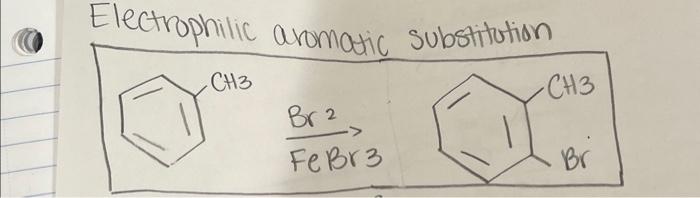 Electrophilic aromatic substitution
CH3
Br2
FeBr3
CH3
Br